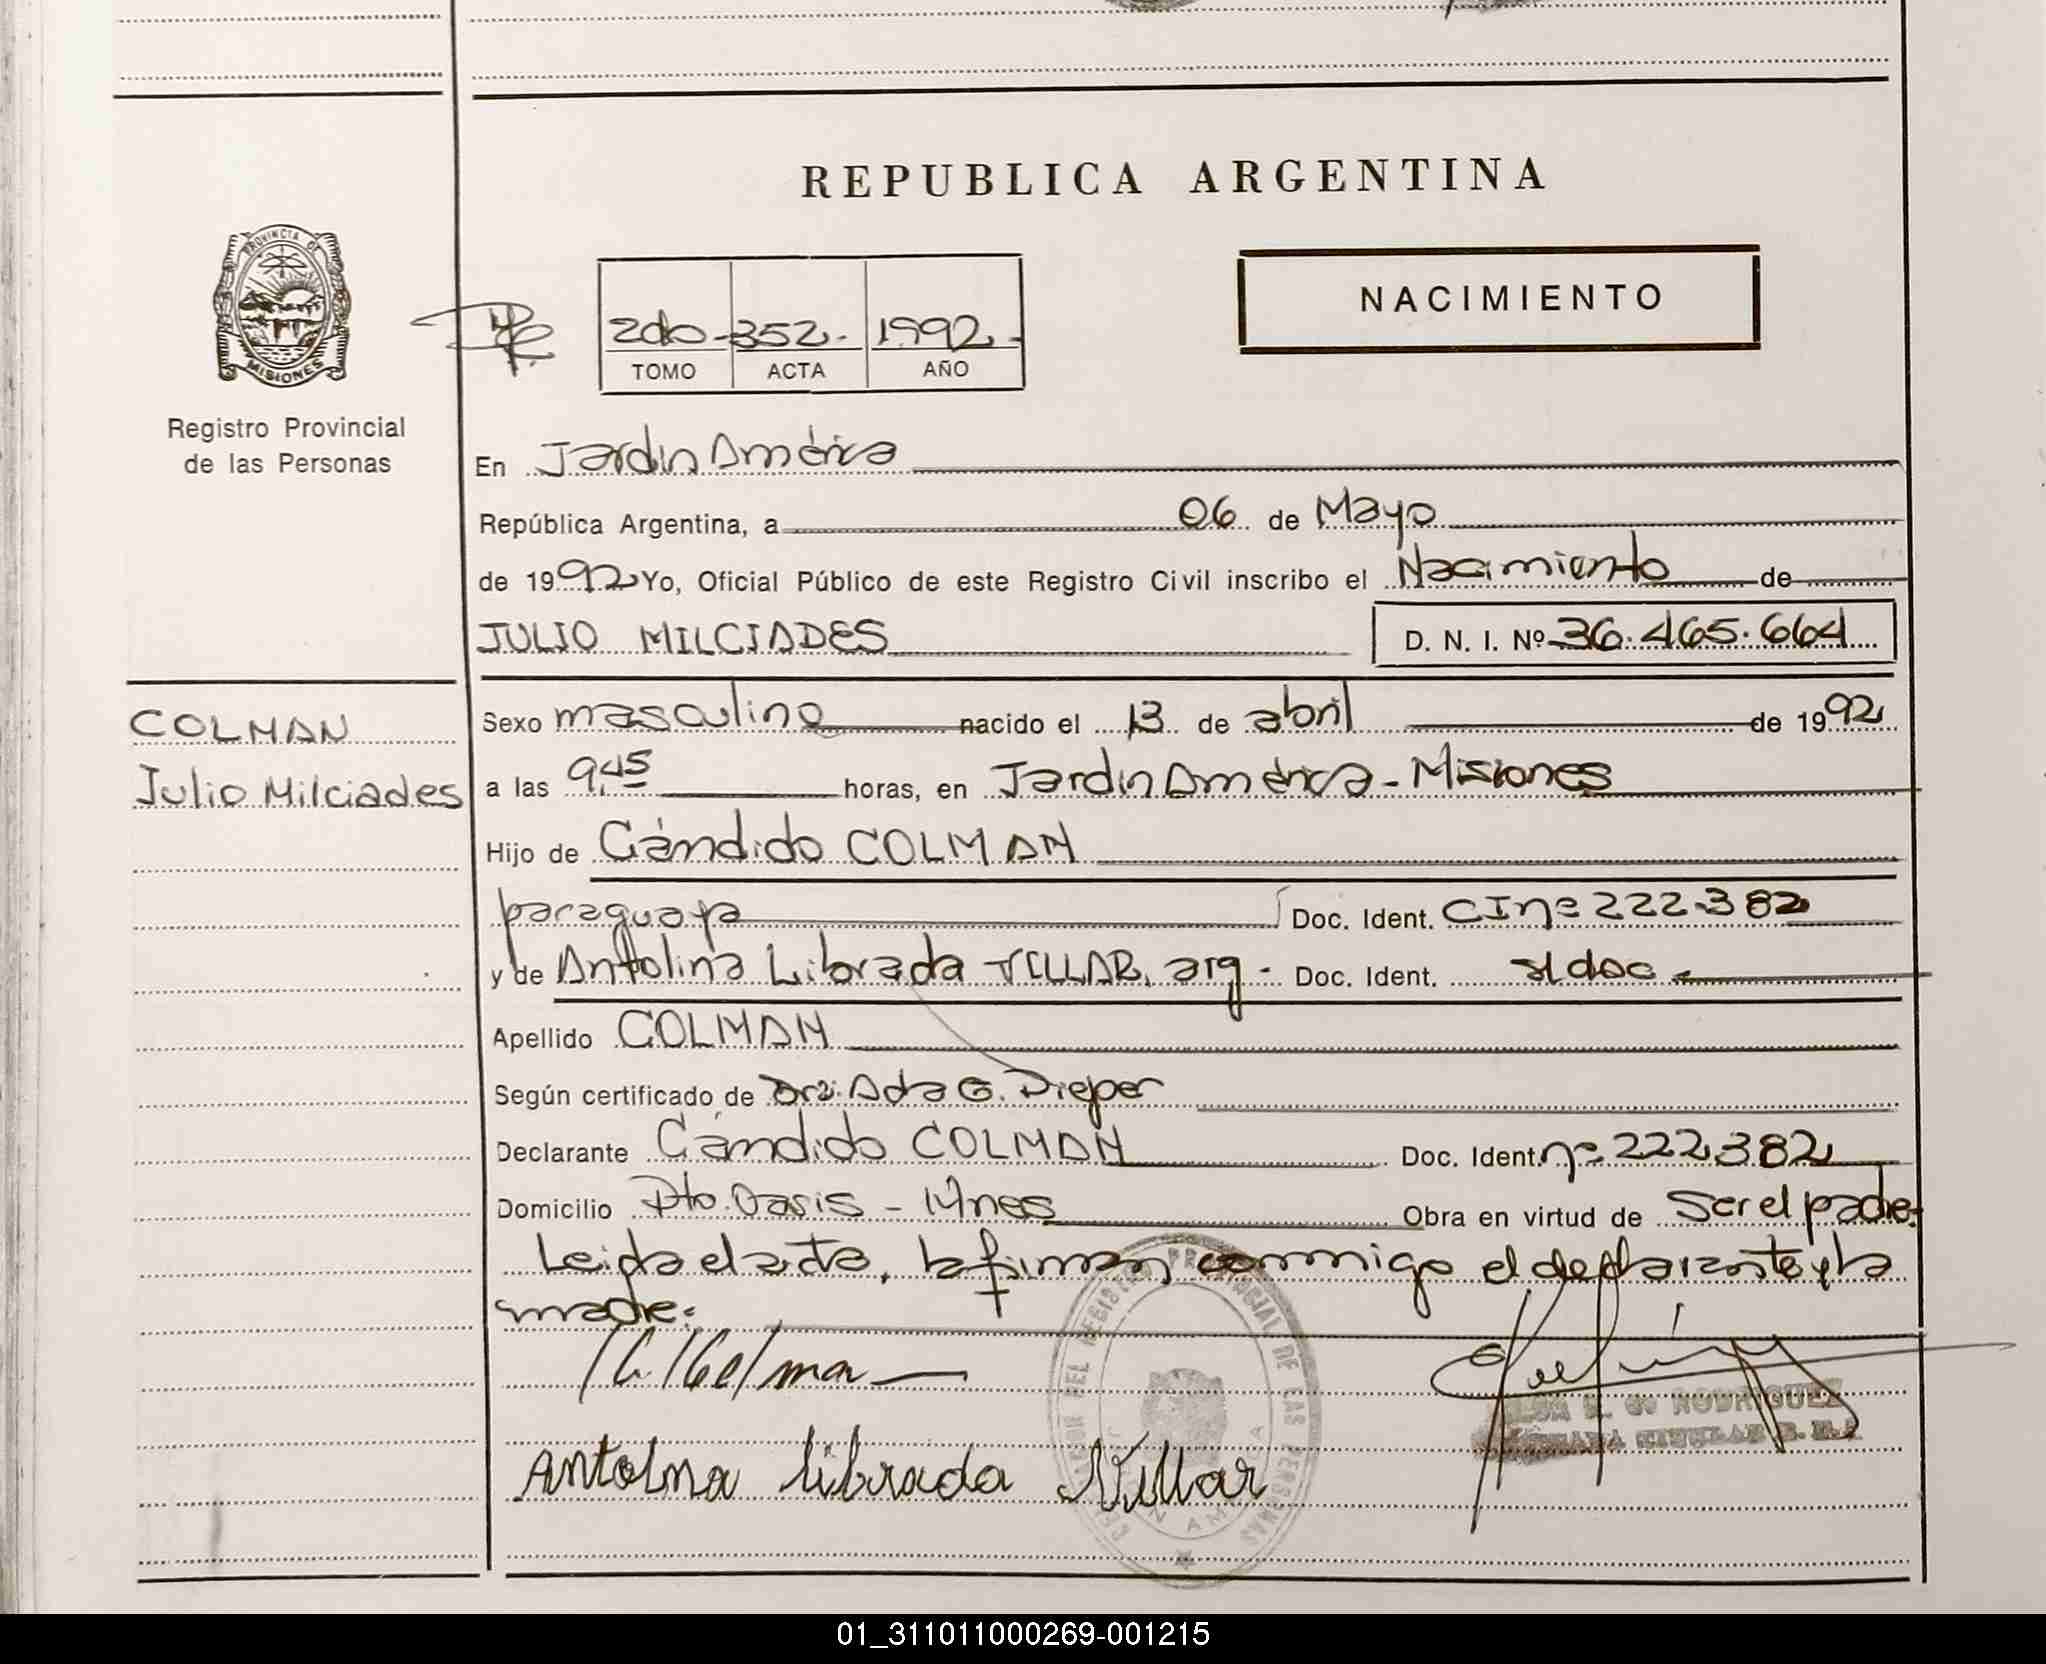 REPUBLICA ARGENTINA
PROVINCIA DE
MISIONES
Registro Provincial
de las Personas
2do - 352 - 1992 -
TOMO ACTA AÑO
NACIMIENTO
En Jardín América
República Argentina, a 06 de Mayo
de 1992 Yo, Oficial Público de este Registro Civil inscribo el Nacimiento de
JULIO MILCIADES D. N. I. Nº 36.465.664
COLMAN
Julio Milciades
Sexo masculino nacido el 13 de abril de 1992
a las 9,45 horas, en Jardín América - Misiones
Hijo de Cándido COLMAN
paraguaya Doc. Ident. CI nº 222.382
y de Antolina Librada VILLAR, arg - Doc. Ident. s/doc -
Apellido COLMAN
Según certificado de Dra. Ada G. Pieper
Declarante Cándido COLMAN Doc. Ident. nº 222.382
Domicilio Pto. Oasis - Mnes Obra en virtud de Ser el padre.
Leida el acta, la firman conmigo el declarante y la
madre:
Antolna librada Villar
RODRIGUEZ
REGISTRO PROVINCIAL DE LAS PERSONAS
01_311011000269-001215